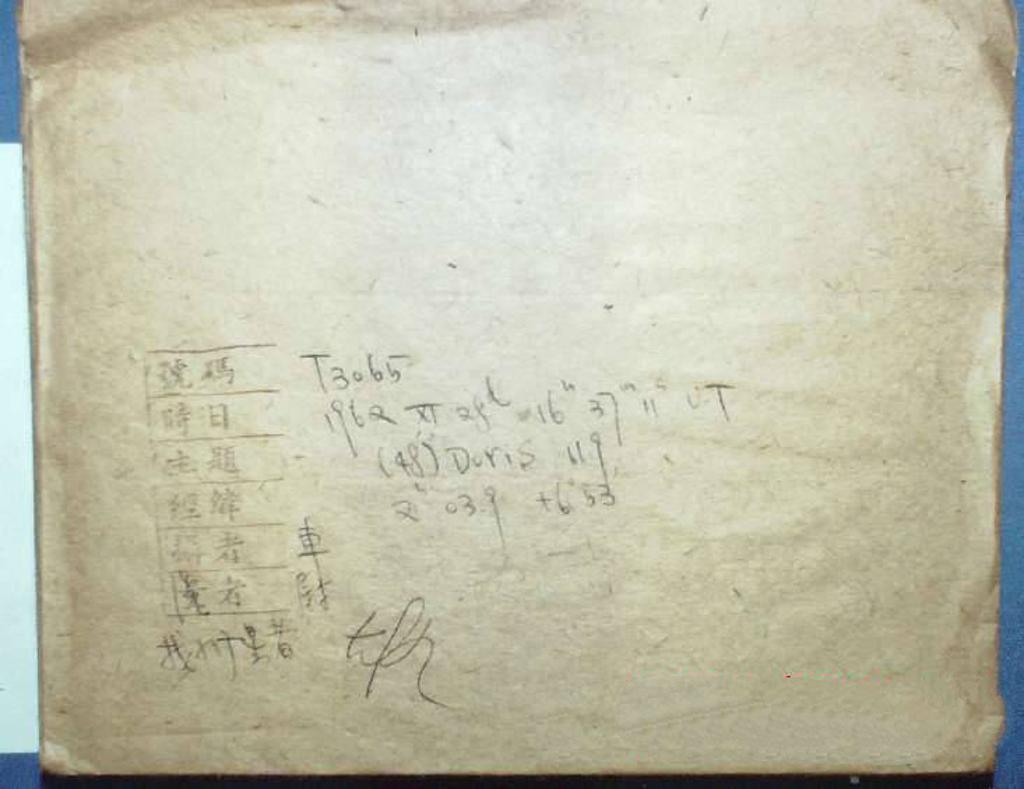 號碼 T3065
時日 1962 XI 28d 16h 37m 11s UT
主題 (48) Doris 119
經緯 2h 03.9 +6°53
者 車
者 尉
找小行星者